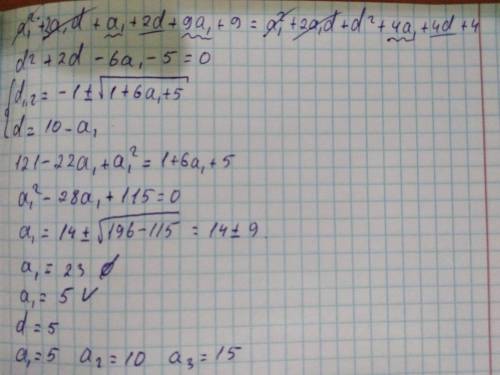 a₁² + 2a₁d + a₁ + 2d + 9a₁ + 9 = a₁² + 2a₁d + d² + 4a₁ + 4d + 4
d² + 2d - 6a₁ - 5 = 0
{ d₁,₂ = -1 ± √(1 + 6a₁ + 5)
{ d = 10 - a₁
121 - 22a₁ + a₁² = 1 + 6a₁ + 5
a₁² - 28a₁ + 115 = 0
a₁ = 14 ± √(196 - 115) = 14 ± 9.
a₁ = 23 ∅
a₁ = 5 V
d = 5
a₁ = 5 a₂ = 10 a₃ = 15